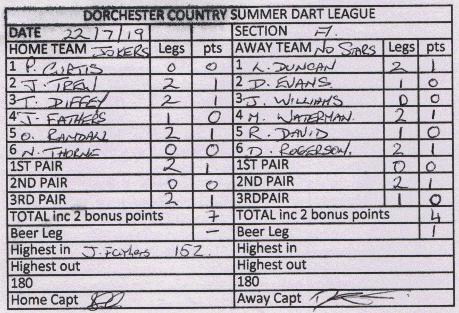 DORCHESTER COUNTRY SUMMER DART LEAGUE
DATE 22/7/19 SECTION A.
HOME TEAM JOKERS Legs pts AWAY TEAM No STARS Legs pts
1 P. CURTIS 0 0 1 L. DUNCAN 2 1
2 J. TREW 2 1 2 D. EVANS 1 0
3 T. DIFFEY 2 1 3 J. WILLIAMS 0 0
4 J. FATHERS 1 0 4 M. WATERMAN. 2 1
5 O. RANDALL 2 1 5 R. DAVID 1 0
6 N. THORNE 0 0 6 D. ROGERSON. 2 1
1ST PAIR 2 1 1ST PAIR 0 0
2ND PAIR 0 0 2ND PAIR 2 1
3RD PAIR 2 1 3RDPAIR 1 0
TOTAL inc 2 bonus points 7 TOTAL inc 2 bonus points 4
Beer Leg – Beer Leg 1
Highest in J. Fathers 152. Highest in
Highest out Highest out
180 180
Home Capt Away Capt